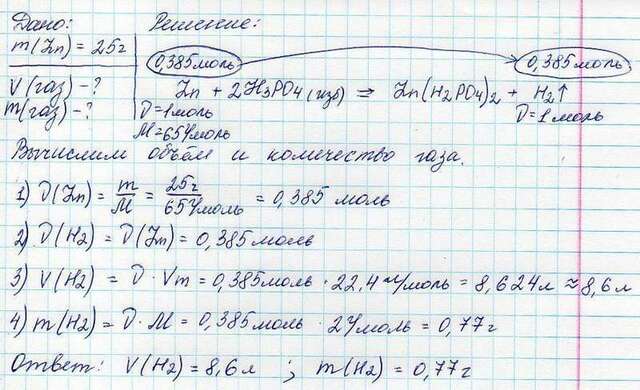 Дано: Решение:
m(Zn) = 25г 0,385моль 0,385моль
V(газ) - ?
m(газ) - ? Zn + 2H3PO4(изб) = Zn(H2PO4)2 + H2↑
ν=1моль ν=1моль
M=65г/моль
Вычислим объём и количество газа.
1) ν(Zn) = m/M = 25г/65г/моль = 0,385 моль
2) ν(H2) = ν(Zn) = 0,385моль
3) V(H2) = ν · Vm = 0,385моль · 22,4л/моль = 8,624л ≈ 8,6л
4) m(H2) = ν · M = 0,385моль · 2г/моль = 0,77г
Ответ: V(H2) = 8,6л ; m(H2) = 0,77г